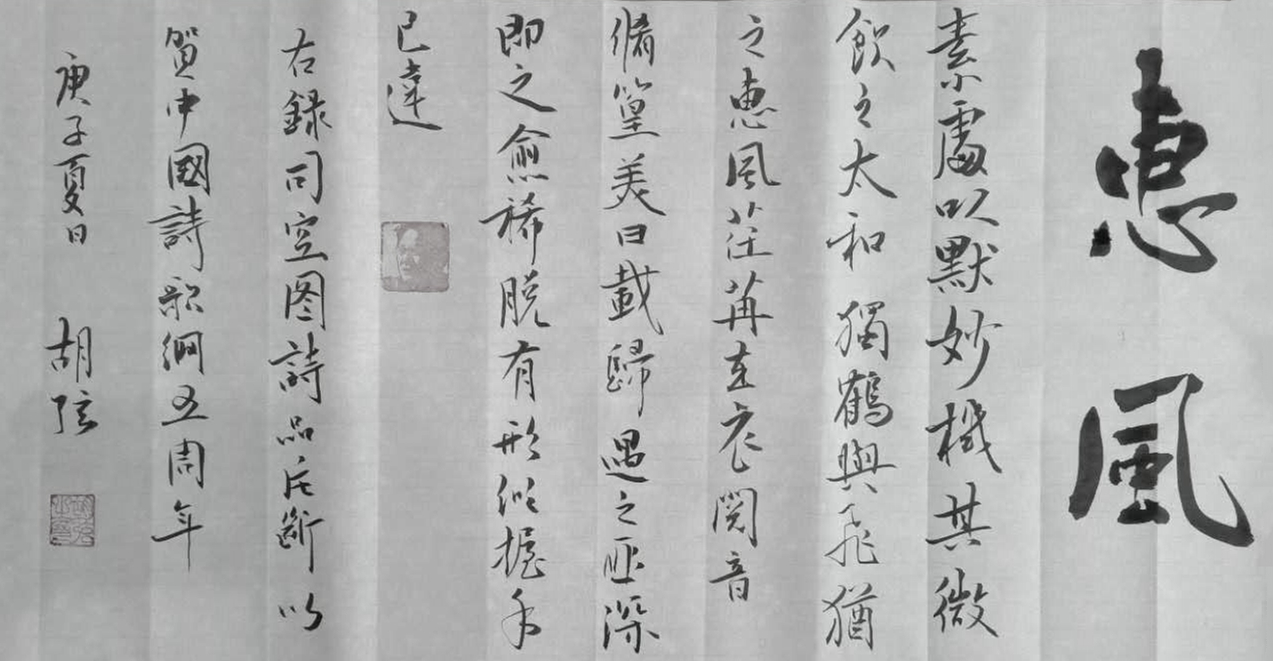 惠風
素處以默妙機其微
飲之太和獨鶴與飛猶
之惠風荏苒在衣閱音
脩篁美曰載歸遇之匪深
即之愈稀脫有形似握手
已違
右録司空图詩品片断以
賀中國詩歌網五周年
庚子夏日 胡弦